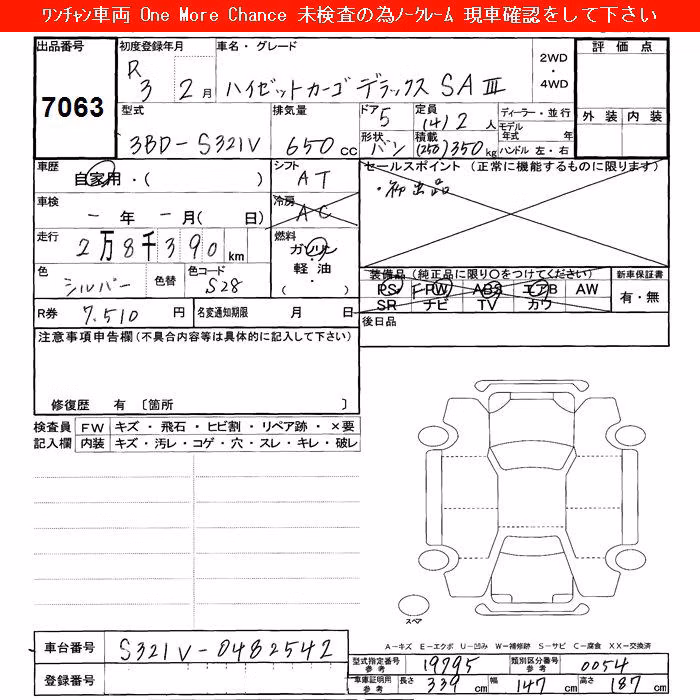 ﾜﾝﾁｬﾝ車両 One More Chance 未検査の為ﾉｰｸﾚｰﾑ 現車確認をして下さい
出品番号 初度登録年月 車名・グレード 評価点
7063 R 3 2月 ハイゼットカーゴ デラックス SAⅢ 2WD・4WD
型式 排気量 ドア 定員 ディーラー・並行 外装 内装
3BD-S321V 650cc 5 (4)2人 モデル年式 年
形状 積載
バン (250)350kg ハンドル 左・右
車歴 シフト セールスポイント (正常に機能するものに限ります)
自家用・( ) AT ・初出品
車検 冷房
ー年ー月( 日) AC
走行 燃料
2万8千390km ガソリン
軽油
・
( )
色 色替 色コード 装備品(純正品に限り○をつけてください) 新車保証書
シルバー S28 PS PW ABS エアB AW 有・無
SR ナビ TV カワ
R券 7,510円 名変通知期限 月 日 後日品
注意事項申告欄(不具合内容等は具体的に記入して下さい)
修復歴 有 〔箇所 〕
検査員 FW キズ・飛石・ヒビ割・リペア跡・×要
記入欄 内装 キズ・汚レ・コゲ・穴・スレ・キレ・破レ
スペア
A-キズ E-エクボ U-凹み W-補修跡 S-サビ C-腐食 XX-交換済
車台番号 S321V-0482542 型式指定番号 参考 19795 類別区分番号 参考 0054
登録番号 車庫証明用 参考 長さ 339cm 幅 147cm 高さ 187cm